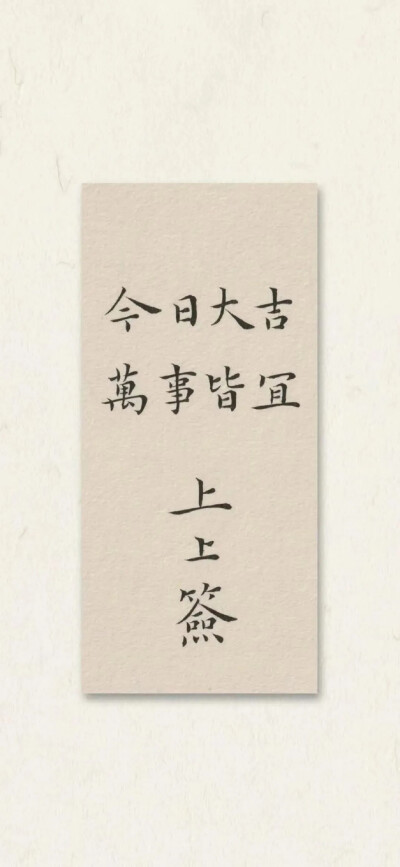 今日大吉
萬事皆宜
上
上
簽